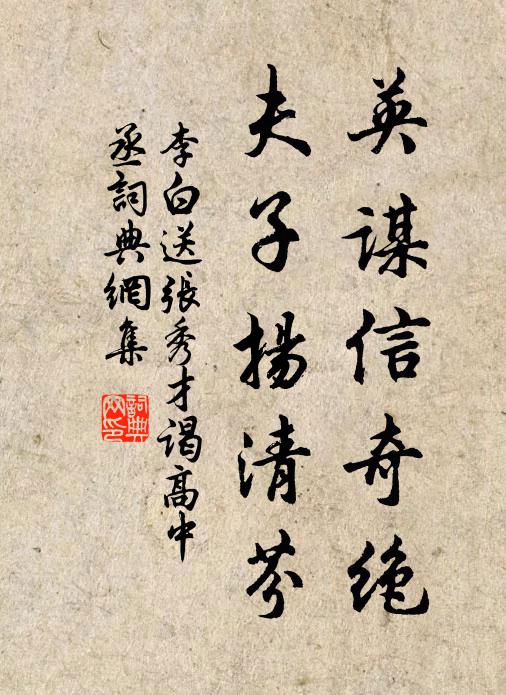 英谋信奇绝
夫子揚清芬
李白送張秀才謁高中
丞詞典網集
詞典
网印